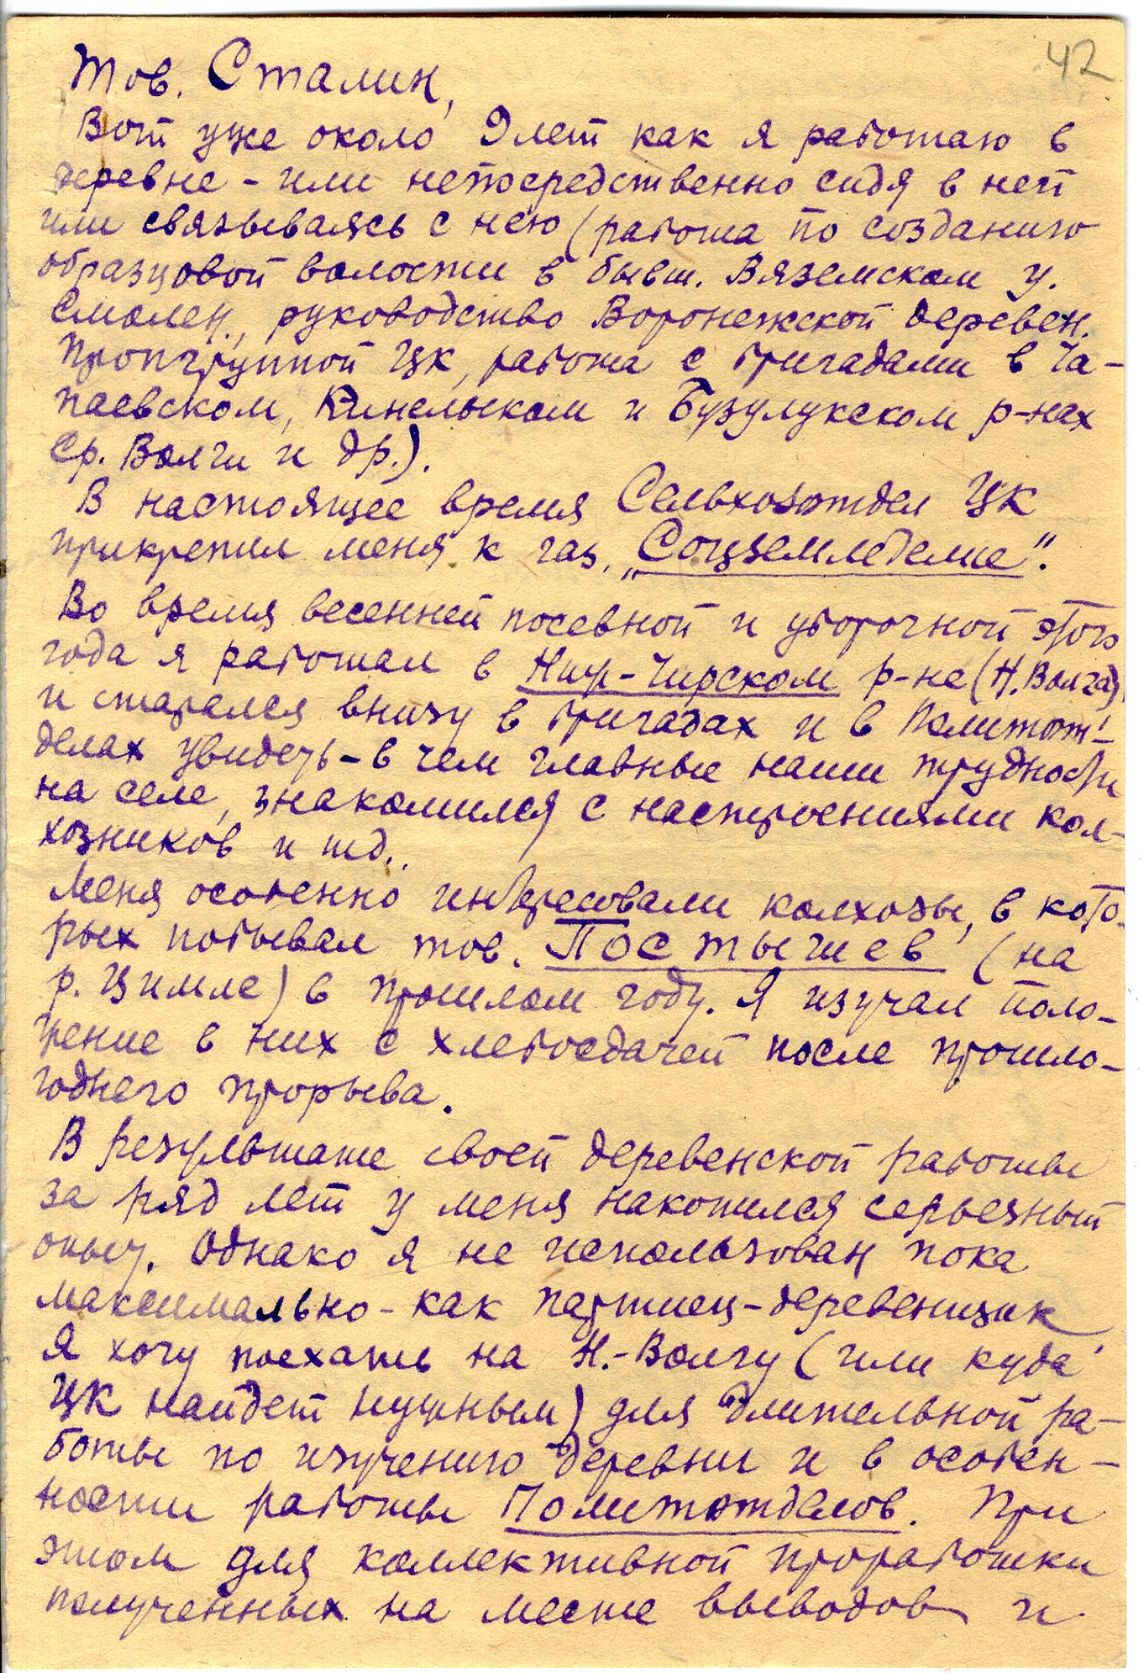 42
Тов. Сталин,
Вот уже около 9 лет как я работаю в
деревне - или непосредственно сидя в ней
или связываясь с нею (работа по созданию
образцовой волости в бывш. Вяземском у.
Смолен., руководство Воронежской деревен.
Пропгруппой ЦК, работа с бригадами в Ча-
паевском, Кинельском и Бузулукском р-нах
Ср. Волги и др.).
В настоящее время Сельхозотдел ЦК
прикрепил меня к газ. „Соцземледелие".
Во время весенней посевной и уборочной этого
года я работал в Ниж-Чирском р-не (Н. Волга)
и старался внизу в бригадах и в Политот-
делах увидеть - в чем главные наши трудности
на селе, знакомился с настроениями кол-
хозников и тд..
Меня особенно интересовали колхозы, в кото-
рых побывал тов. Постышев (на
р. Цимле) в прошлом году. Я изучал поло-
жение в них с хлебосдачей после прошло-
годнего прорыва.
В результате своей деревенской работы
за ряд лет у меня накопился серьезный
опыт. Однако я не использован пока
максимально - как партиец-деревенщик.
Я хочу поехать на Н.-Волгу (или куда
ЦК найдет нужным) для длительной ра-
боты по изучению деревни и в особен-
ности работы Политотделов. При
этом для коллективной проработки
полученных на месте выводов и